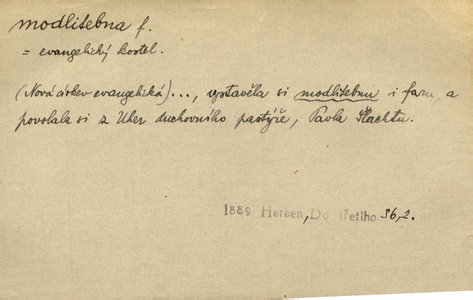 modlitebna f.
= evangelický kostel.
(Nová církev evangelická)..., vystavěla si modlitebnu i faru a
povolala si z Uher duchovního pastýře, Pavla Šlachtu.
1889 Herben, Do třetího 36,2.